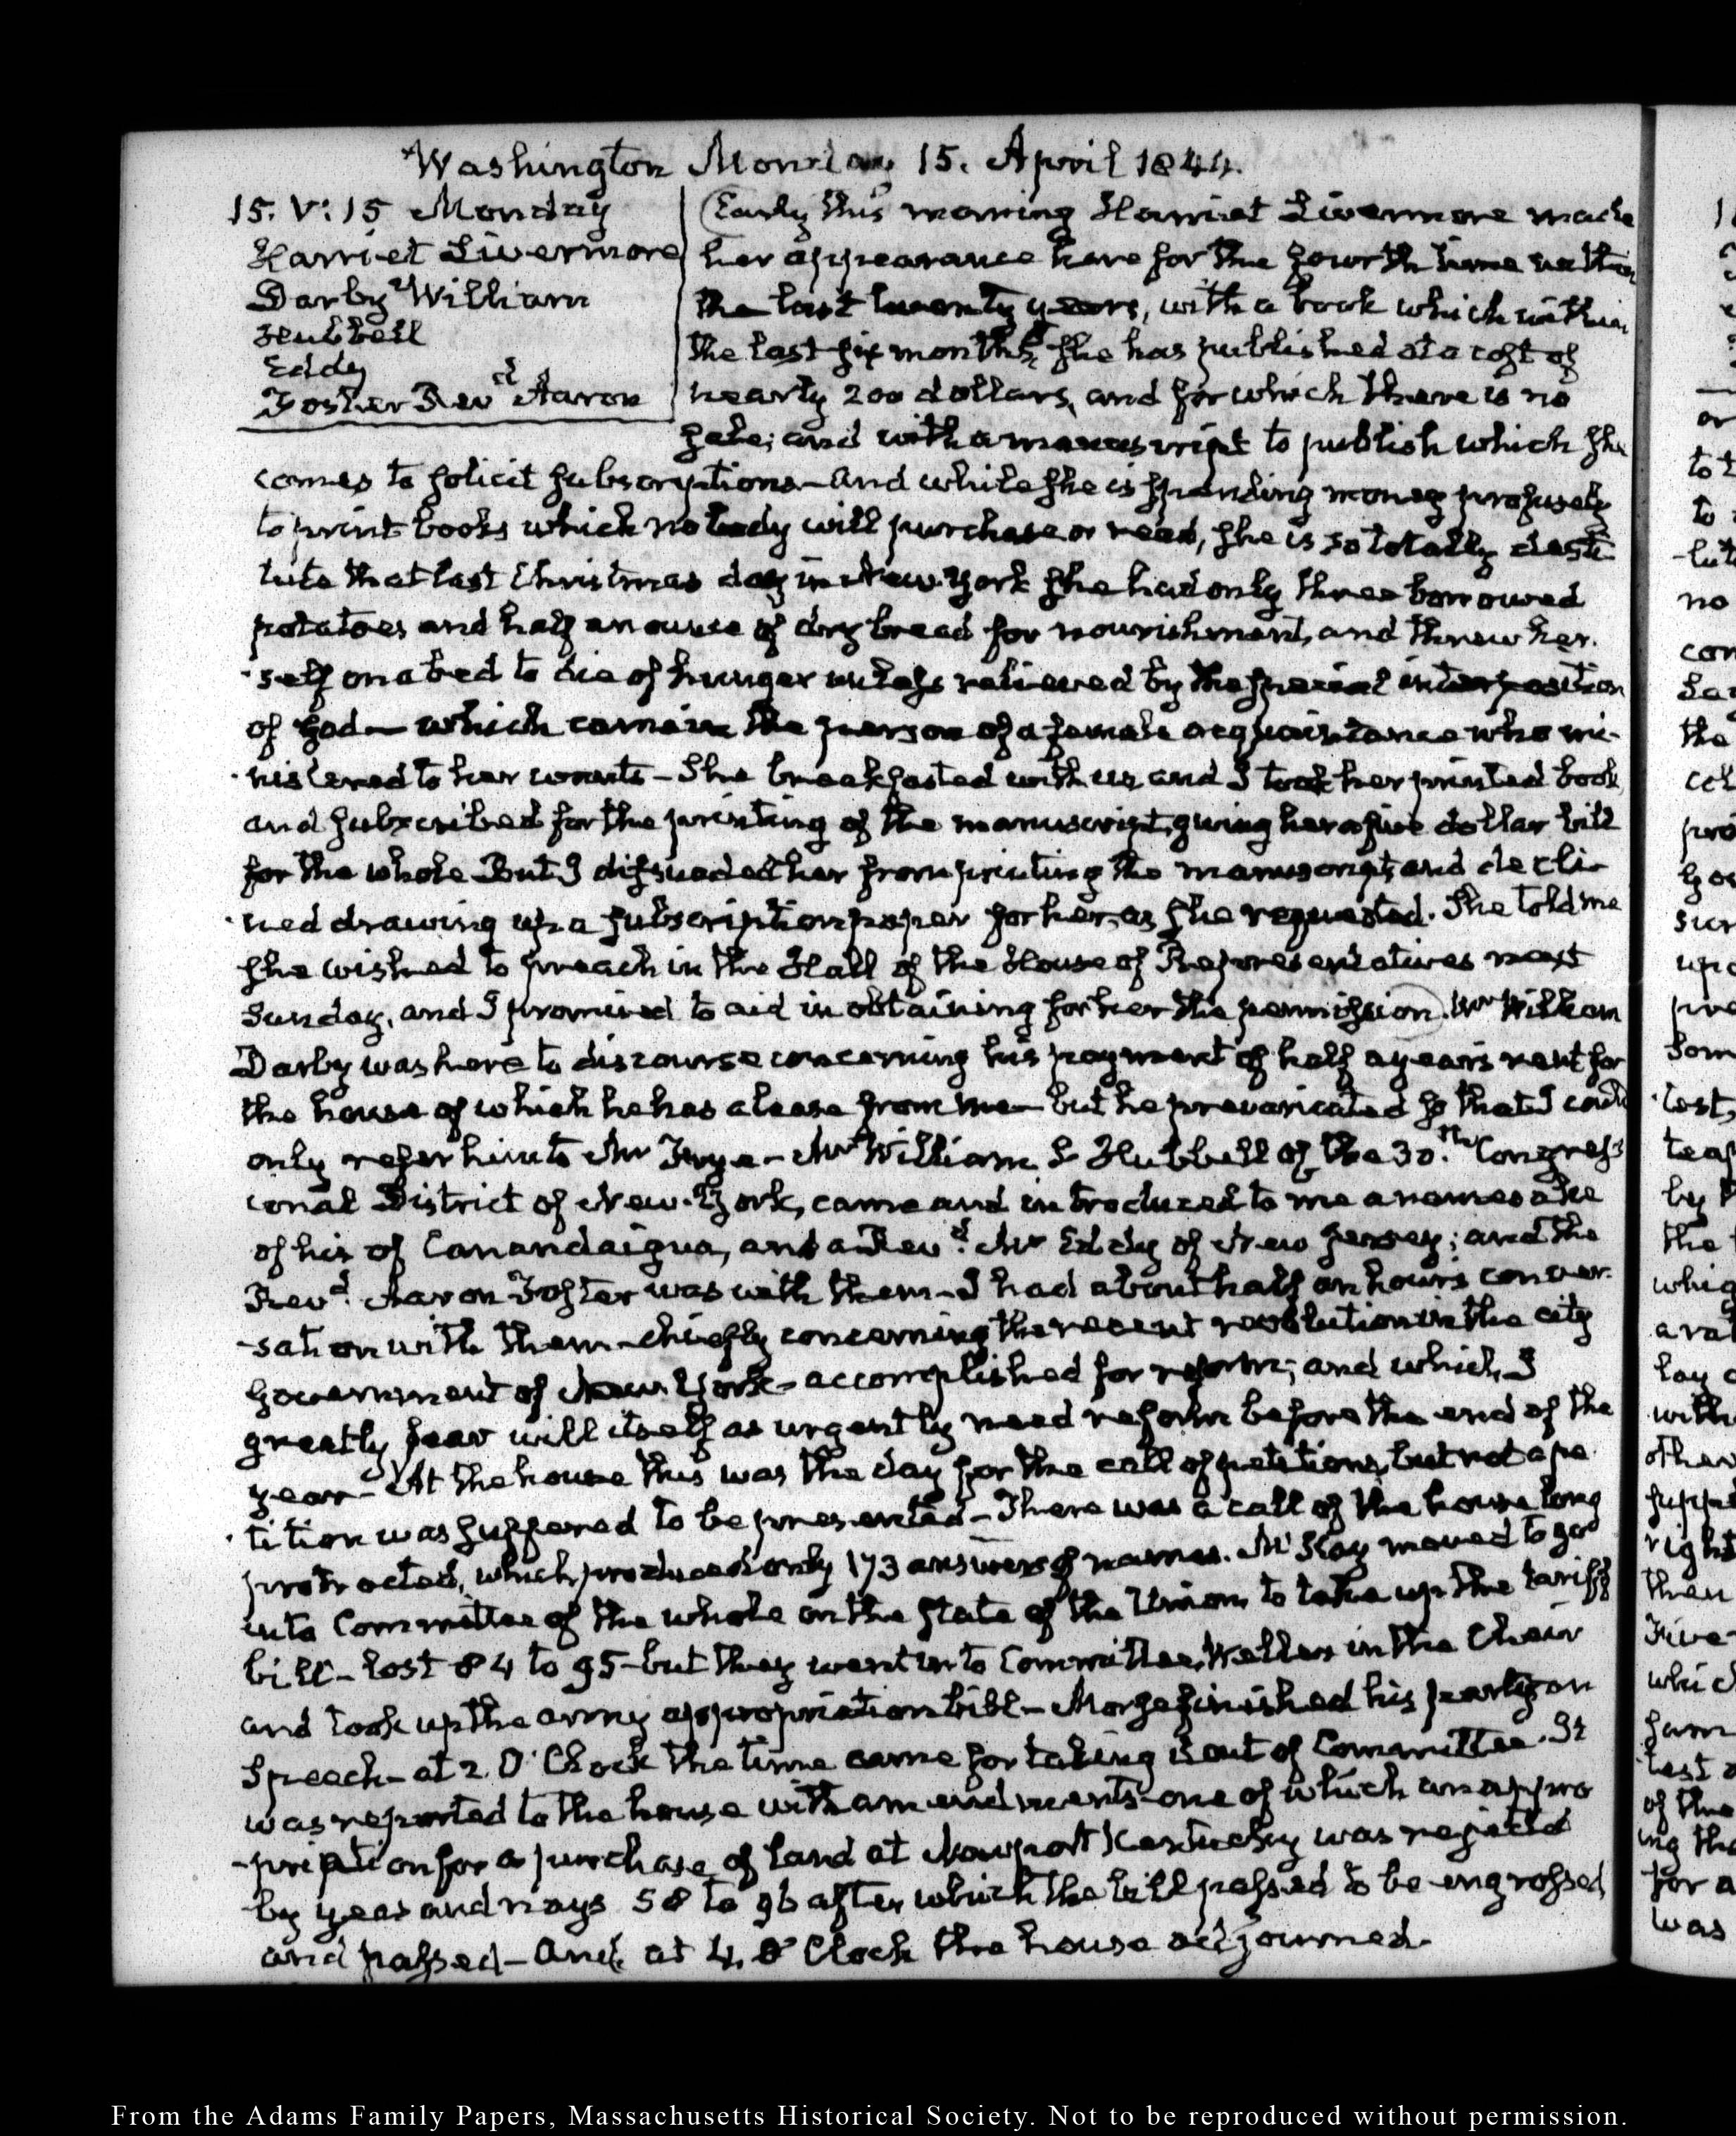 Washington Monday 15. April 1844.
15. V:15 Monday
Harriet Livermore
Darby William
Hubbell
Eddy
Foster Revd Aaron
Early this morning Harriet Livermore made
her appearance here for the fourth time within
the last twenty years, with a book which within
the last six months, she has published at a cost of
nearly 200 dollars, and for which there is no
sale; and with a manuscript to publish which she
comes to solicit subscriptions—and while she is spending money profusely
to print books which nobody will purchase or read, she is so totally desti
tute that last Christmas day in New-York she had only three borrowed
potatoes and half an ounce of dry bread for nourishment, and threw her-
-self on a bed to die of hunger unless relieved by the special interposition
of God— which came in the person of a female acquaintance who mi-
-nistered to her wants— She breakfasted with us, and I took her printed book
and subscribed for the printing of the manuscript, giving her a five dollar bill
for the whole But I dissuaded her from printing the manuscript, and decli-
-ned drawing up a subscription paper for her, as she requested. She told me
she wished to preach in the Hall of the House of Representatives next
Sunday, and I promised to aid in obtaining for her the permission. Mr William
Darby was here to discourse concerning his payment of half a year's rent for
the house of which he has a lease from me— but he prevaricated so that I could
only refer him to Mr Frye— Mr William S Hubbell of the 30.th Congress
ional District of New-York, came and introduced to me a namesake
of his of Canandaigua, and a Revd. Mr Eddy of New Jersey; and the
Revd. Aaron Foster was with them—I had about half an hour's conver-
-sation with them—chiefly concerning the recent revolution in the city
government of New-York—accomplished for reform; and which, I
greatly fear will itself as urgently need reform before the end of the
year— At the house this was the day for the call of petitions, but not a pe
-tition was suffered to be presented— There was a call of the house long
protracted, which produced only 173 answers of names. McKay moved to go
into Committee of the whole on the State of the Union, to take up the tariff
bill— lost 84 to 95—but they went into Committee, Weller in the Chair
and took up the army appropriation bill— Morse finished his party on
Speech—at 2. O'Clock the time came for taking it out of Committee. It
was reported to the house with amendments—one of which an appro
-priation for a purchase of land at Newport Kentucky was rejected
by yeas and nays 58 to 96 after which the bill passed to be engrossed
and passed—And at 4. O'Clock the house adjourned.
From the Adams Family Papers, Massachusetts Historical Society. Not to be reproduced without permission.